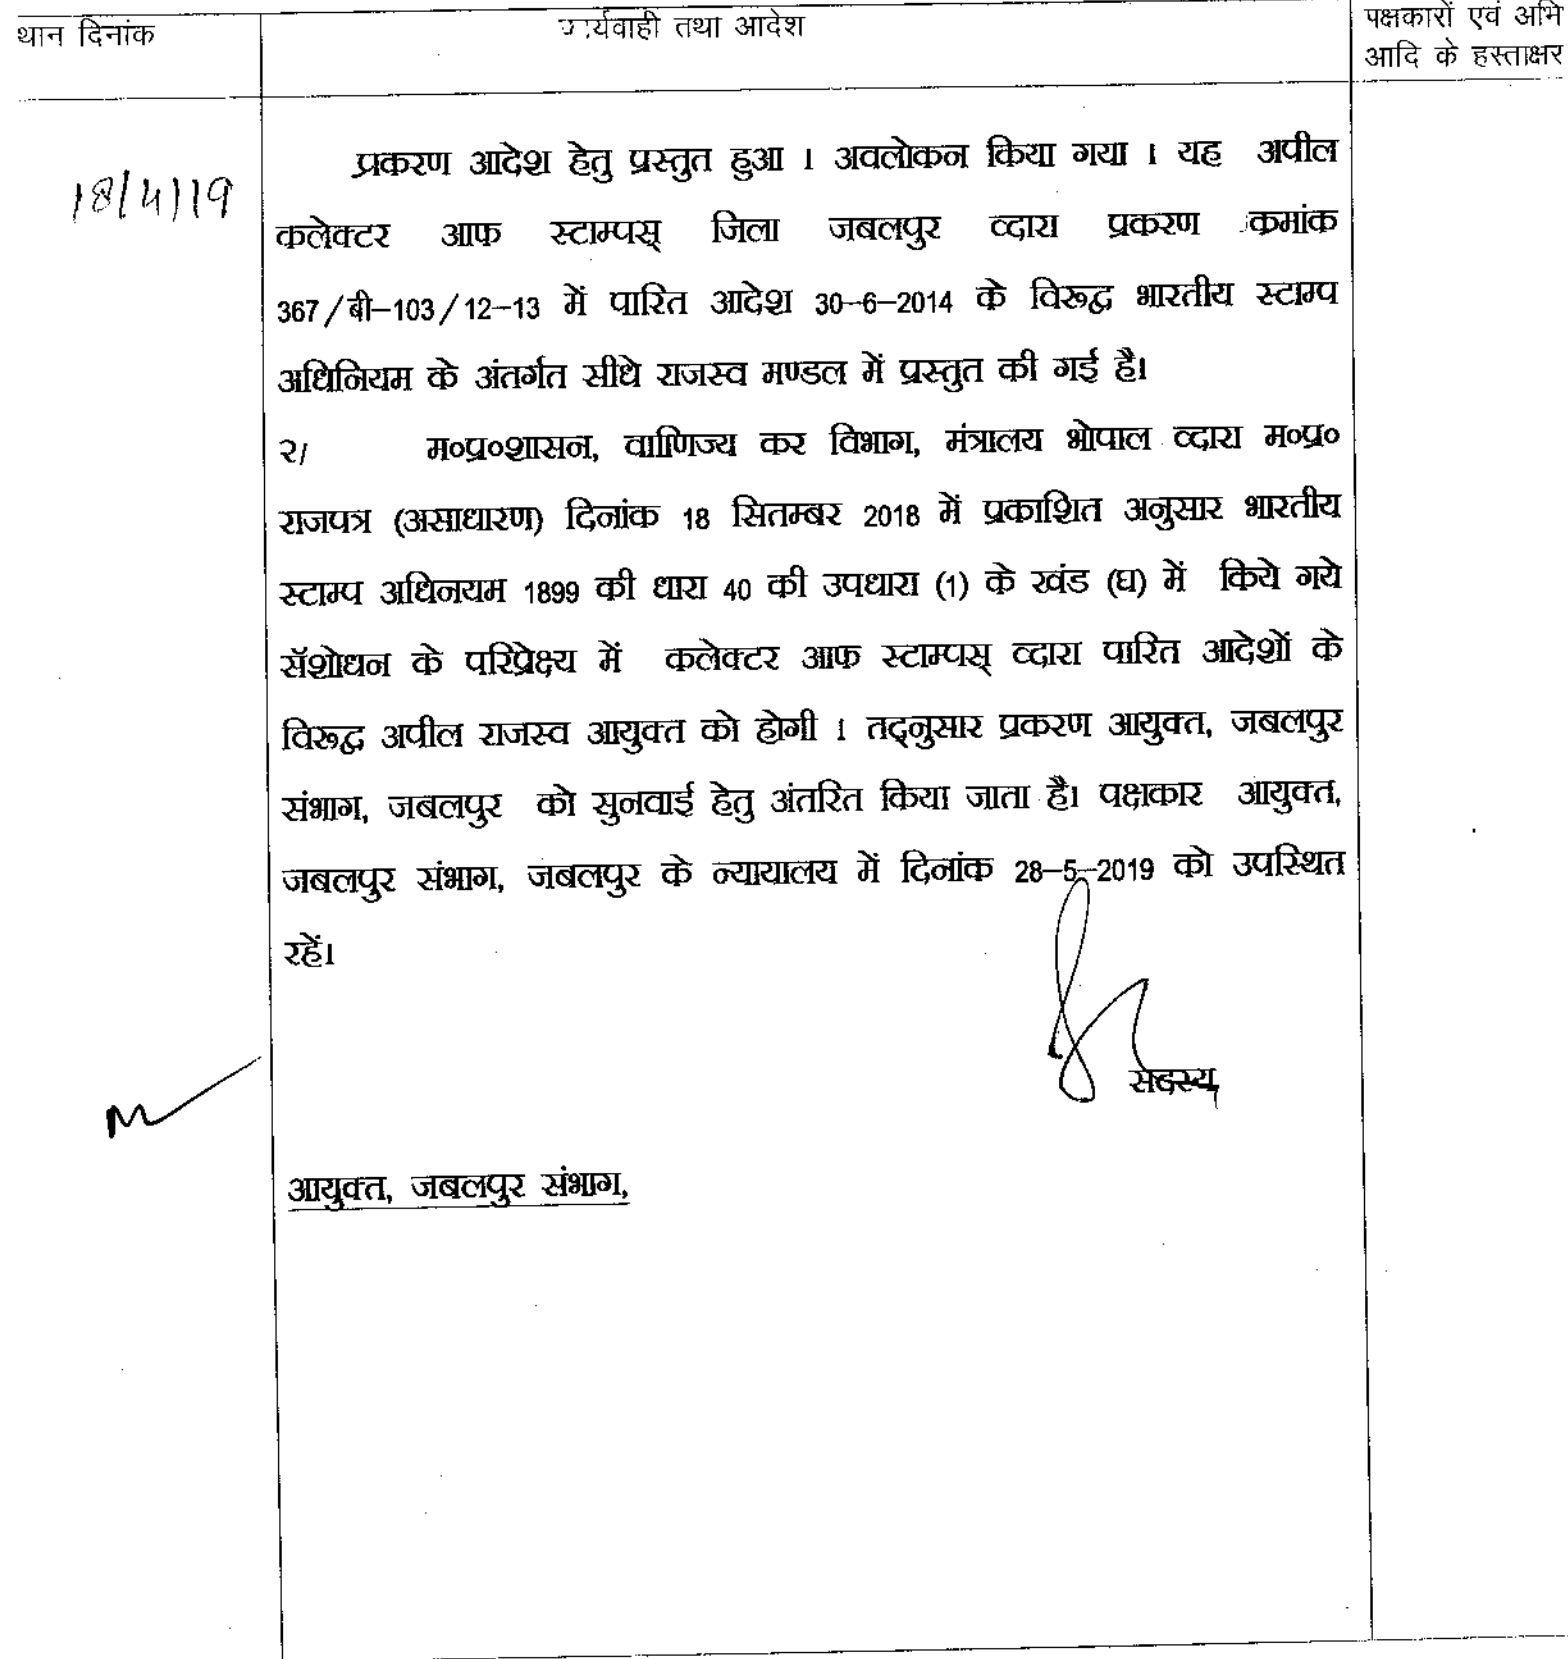 थान दिनांक
कार्यवाही तथा आदेश
पक्षकारों एवं अभि
आदि के हस्ताक्षर
18/4/19
प्रकरण आदेश हेतु प्रस्तुत हुआ । अवलोकन किया गया । यह अपील
कलेक्टर आफ स्टाम्पस् जिला जबलपुर व्दारा प्रकरण कमांक
367/बी–103/12–13 में पारित आदेश 30–6–2014 के विरूद्ध भारतीय स्टाम्प
अधिनियम के अंतर्गत सीधे राजस्व मण्डल में प्रस्तुत की गई है।
२/ म०प्र०शासन, वाणिज्य कर विभाग, मंत्रालय भोपाल व्दारा म०प्र०
राजपत्र (असाधारण) दिनांक 18 सितम्बर 2018 में प्रकाशित अनुसार भारतीय
स्टाम्प अधिनयम 1899 की धारा 40 की उपधारा (1) के खंड (घ) में किये गये
सॅशोधन के परिप्रेक्ष्य में कलेक्टर आफ स्टाम्पस् व्दारा पारित आदेशों के
विरूद्ध अपील राजस्व आयुक्त को होगी । तद्नुसार प्रकरण आयुक्त, जबलपुर
संभाग, जबलपुर को सुनवाई हेतु अंतरित किया जाता है। पक्षकार आयुक्त,
जबलपुर संभाग, जबलपुर के न्यायालय में दिनांक 28–5–2019 को उपस्थित
रहें।
सदस्य
आयुक्त, जबलपुर संभाग,